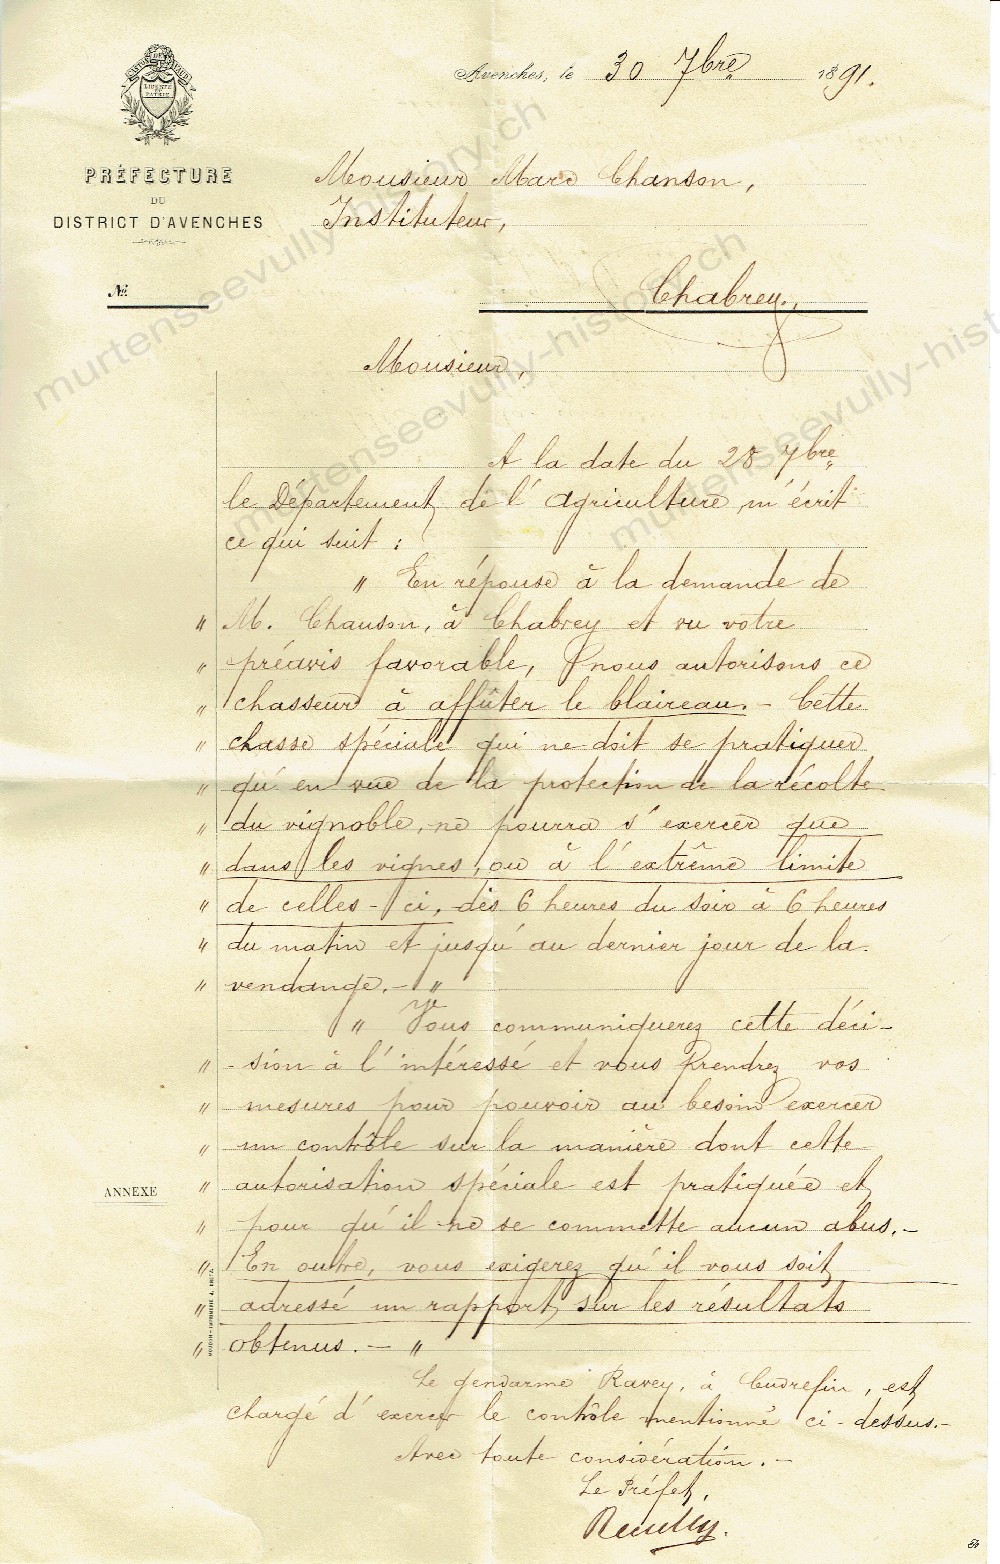 CANTON DE VAUD
LIBERTÉ
ET
PATRIE
PRÉFECTURE
DU
DISTRICT D'AVENCHES
№
Avenches, le 30 7bre 1891.
Monsieur Marc Chanson,
Instituteur,
Chabrey.
Monsieur,
A la date du 28 7bre
le Département de l'agriculture m'écrit
ce qui suit :
" En réponse à la demande de
" M. Chanson, à Chabrey et vu votre
" préavis favorable, nous autorisons ce
" chasseur à affûter le blaireau. – Cette
" chasse spéciale qui ne doit se pratiquer
" qu'en vue de la protection de la récolte
" du vignoble, ne pourra s'exercer que
" dans les vignes, ou à l'extrême limite
" de celles-ci, dès 6 heures du soir à 6 heures
" du matin et jusqu'au dernier jour de la
" vendange. – "
" Vous communiquerez cette déci-
" -sion à l'intéressé et vous prendrez vos
" mesures pour pouvoir au besoin exercer
" un contrôle sur la manière dont cette
" autorisation spéciale est pratiquée et
" pour qu'il ne se commette aucun abus. –
" En outre, vous exigerez qu'il vous soit
" adressé un rapport sur les résultats
" obtenus. – "
Le gendarme Ravey, à Cudrefin, est
chargé d'exercer le contrôle mentionné ci-dessus. –
Avec toute considération. –
Le Préfet,
ANNEXE
murtenseevully-history.ch
murtenseevully-history.ch
murtenseevully-hist